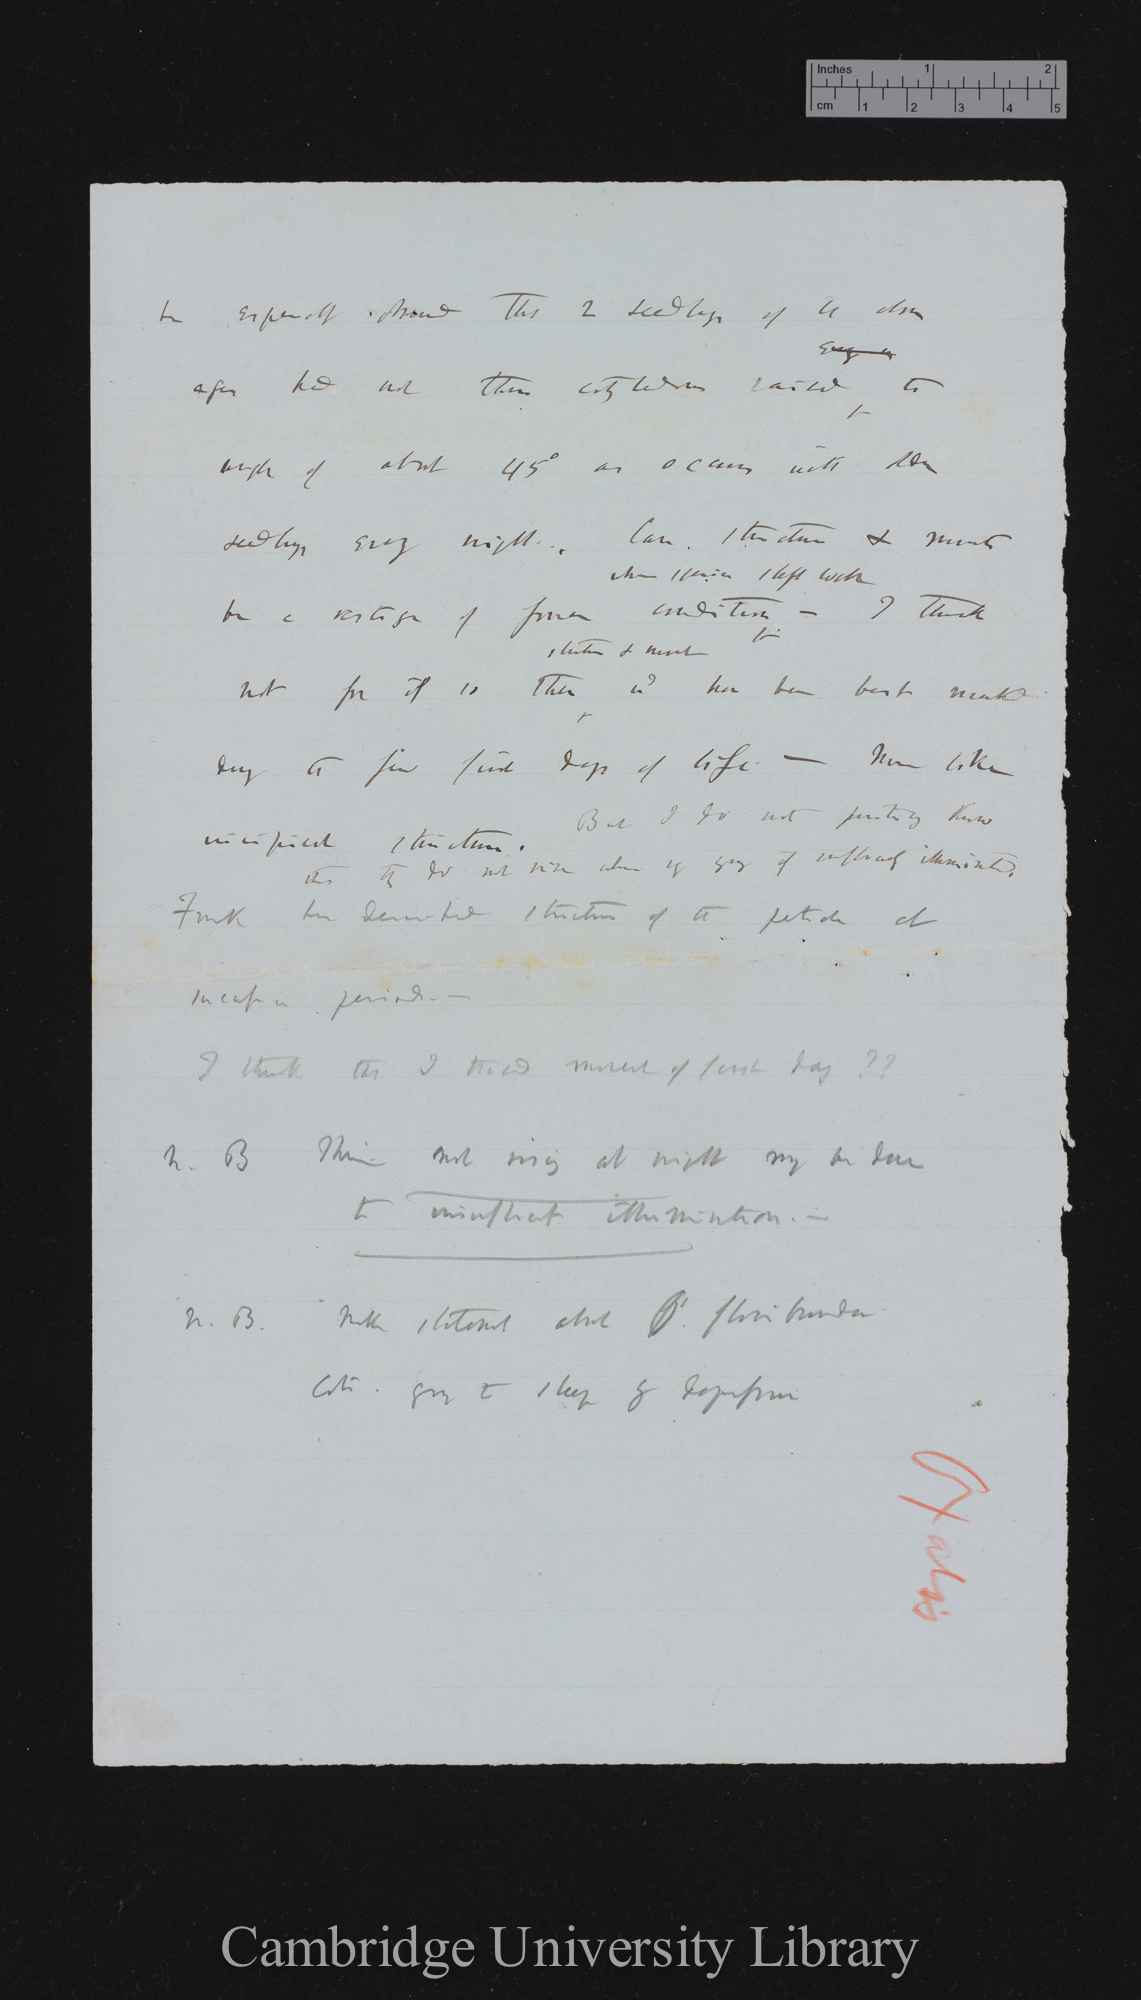 Inches 1 2
cm 1 2 3 4 5
be especially observed this 2 seedlings of the above
ages had not their cotyledons raised to
angle of about 45° as occurs with older
seedlings every night. Can structure & movements
when species slept
be a vestige of former condition — I think
structure & movement
not for if so this wd have been best marked
during the few first days of life. — More like
incipient structure. But I do not positively know
that they do not rise when very young if sufficiently illuminated.
Frank has described structure of the petiole at
period. —
I think that I traced movement of first day ??
N. B not rising at night may be due
to insufficient illumination. —
N. B. Make statement about O. floribunda
Cots. going to sleep by
Oxalis
Cambridge University Library